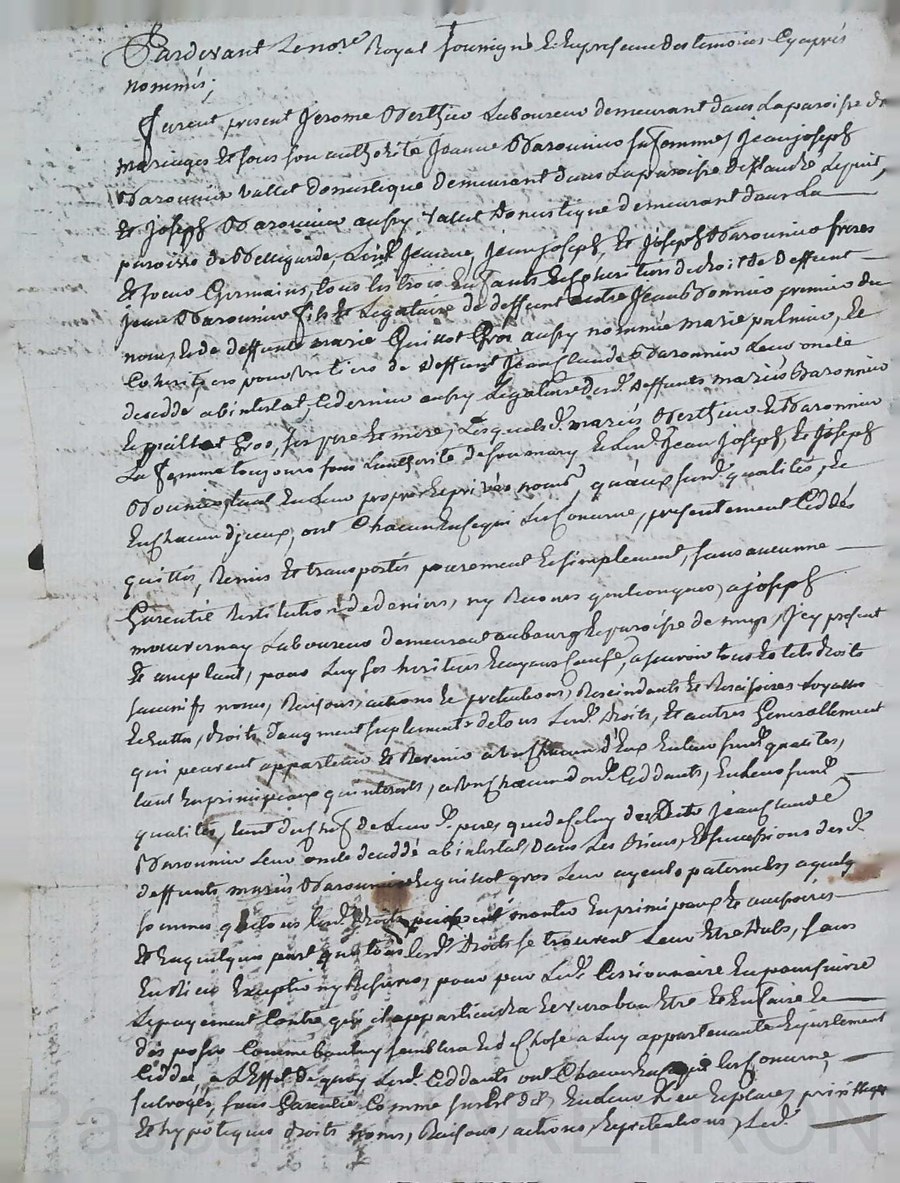 Pardevant Le no.re Royal soussigné Et En presence des temoins Cy apres
nommés,
furent present Jerome Berthier Laboureur demeurant dans La paroisse de
maringes Et sous son authorité Jeanne Baronnier sa femme, Jean joseph
Baronnier vallet domestique demeurant dans La paroisse de
Et joseph Baronnier aussy vallet domestique demeurant dans La
paroisse de Bellegarde, Jeanne, jean joseph, Et joseph Baronnier freres
Et soeur Germains, tous les trois Enfants Et heritiers de droit de deffunt
jean Baronnier fils Et Legataire de deffunt autre jean Baronnier premier du
nom, Et de deffunte marie Guillot Gros aussy nommée marie palmier, Et
Coheritiers pour un tiers de deffunt jean Claude Baronnier Leur oncle
decedé abintestat, Ce dernier aussy Legataire desd. deffunts mariés Baronnier
Et guillot Gros, ses pere Et mere, Lesquels d. mariés Berthier Et Baronnier
La femme toujours sous L'authorité de son mary Et Led. Jean joseph, Et joseph
Baronnier tant En Leur propre Et privés noms, qu'aux susd. qualités, Et
En chacun d'jceux, ont Chacun En ce qui Les Concerne, presentement Ceddés
quittés, Remis Et transportés purement Et simplement, sans aucunne
Garentie Restitution de deniers, ny Recours quelconques, a joseph
Laboureur demeurant au bourg Et paroisse de jcy present
Et acceptant, pour Luy ses heritiers Et ayans Cause, a scavoir tous Et tels droits
noms, Raisons, actions Et pretentions, Rescindants Et Rescisoires
Echuttes, droits d'augment suplements de tous Lesd. droits, Et autres Generallement
qui peuvent appartenir Et Revenir a un Chacun d'Eux En Leur susd. qualités,
tant En principaux qu'interests, a un Chacun desd. Ceddants, En Leurs susd.
qualités, tant du chef de Leur d. pere, que de Celuy dud. jean Claude
Baronnier Leur oncle decedé abintestat, dans Les Biens, Et successions desd.
deffunts mariés Baronnier Et guillot gros Leur ayeuls paternels, a quelq
sommes que tous Lesd. droits puissent monter En principaux Et accessoires
Et En quelque part que tous Lesd. droits se trouvent Leur Etre dubs, sans
En Rien Excepter ny Reserver, pour par Led. Cessionnaire En poursuivre
Le payement Contre qui il appartiendra Et verra bon Etre Et En faire Et
disposer Comme bon Luy semblera Et de Chose a Luy appartenante
Ceddée, a L'Effet de quoy Lesd. Ceddants ont Chacun En ce qui Les Concerne,
subrogés, sans Garentie Comme sus Est dit, En Leur Lieu Et place, privilleges
Et hypoteques droits noms, Raisons, actions, Et pretentions, Led.